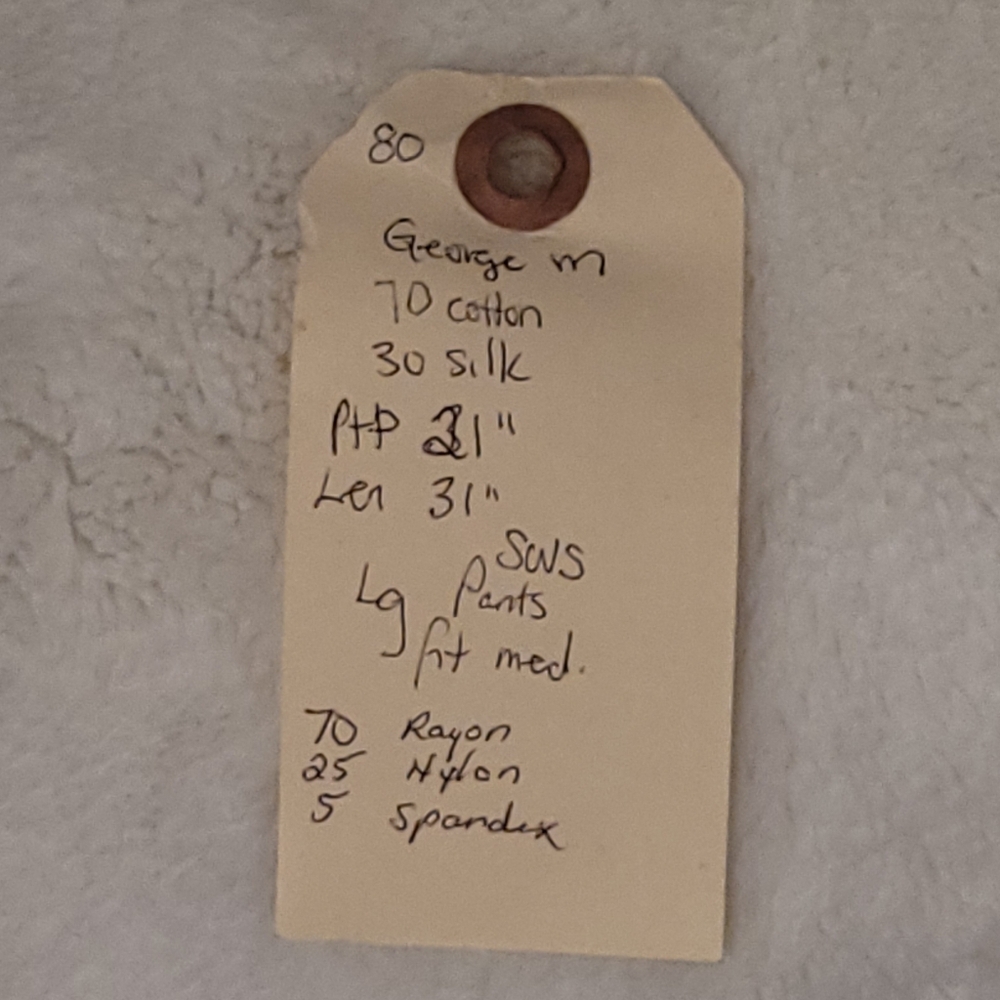 80
George m
70 cotton
30 silk
PtP 21"
Len 31"
SWS
Lg Pants
fit med.
70 Rayon
25 Nylon
5 Spandex